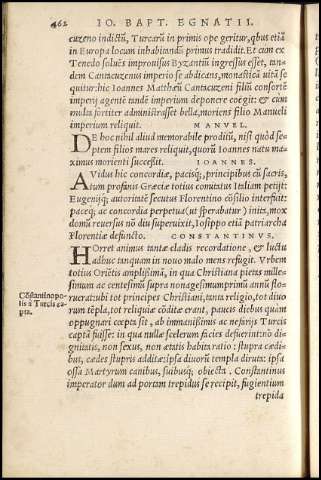 462 IO. BAPT. EGNATII.
cuzeno indictũ, Turcarũ in primis ope geritur, qbus etiã
in Europa locum inhabitandi primus tradidit. Et cum ex
Tenedo soluẽs improuisus Byzantiũ ingressus esset, tan=
dem Cantacuzenus imperio se abdicans, monasticã uitã se
quitur: hic Ioannes Matthæũ Cantacuzeni filiũ consortẽ
imperij agentẽ tandẽ imperium deponere coëgit: & cum
multa fortiter administrasset bella, moriens filio Manueli
imperium reliquit.
MANVEL.
De hoc nihil aliud memorabile proditũ, nisi quòd se=
ptem filios mares reliquit, quorũ Ioannes natu ma=
ximus morienti successit.
IOANNES.
Auidus hic concordiæ, pacisq́;, principibus cũ sacris,
tum profanis Græciæ totius comitatus Italiam petijt:
Eugenijq́; autoritatẽ secutus Florentino cõsilio interfuit:
paceq́; ac concordia perpetua (ut sperabatur) inita, mox
domũ reuersus nõ diu superuixit, Iosippo etiã patriarcha
Florentiæ defuncto.
CONSTANTINVS.
Horret animus tantæ cladis recordatione, & luctu
adhuc tanquam in nouo malo mens refugit. Vrbem
totius Oriẽtis amplißimã, in qua Christiana pietas mille=
simum ac centesimũ supra nonagesimumprimũ annũ flo=
rueratːubi tot principes Christiani, tanta religio, tot diuo
rum tẽpla, tot reliquiæ cõditæ erant, paucis diebus quàm
oppugnari cœpta sit, ab immanißimis ac nefarijs Turcis
captã fuisse: in qua nullũ scelerum facies defuerit: nõ di=
gnitatis, non sexus, non ætatis habita ratio: stupra cædi=
bus, cædes stupris additæ: ipsa diuorũ templa diruta: ipsa
ossa Martyrum canibus, suibusq́; obiecta. Constantinus
imperator dum ad portam trepidus se recipit, fugientium
trepida
Cõstantinopo=
lis à Turcis ca=
pta.